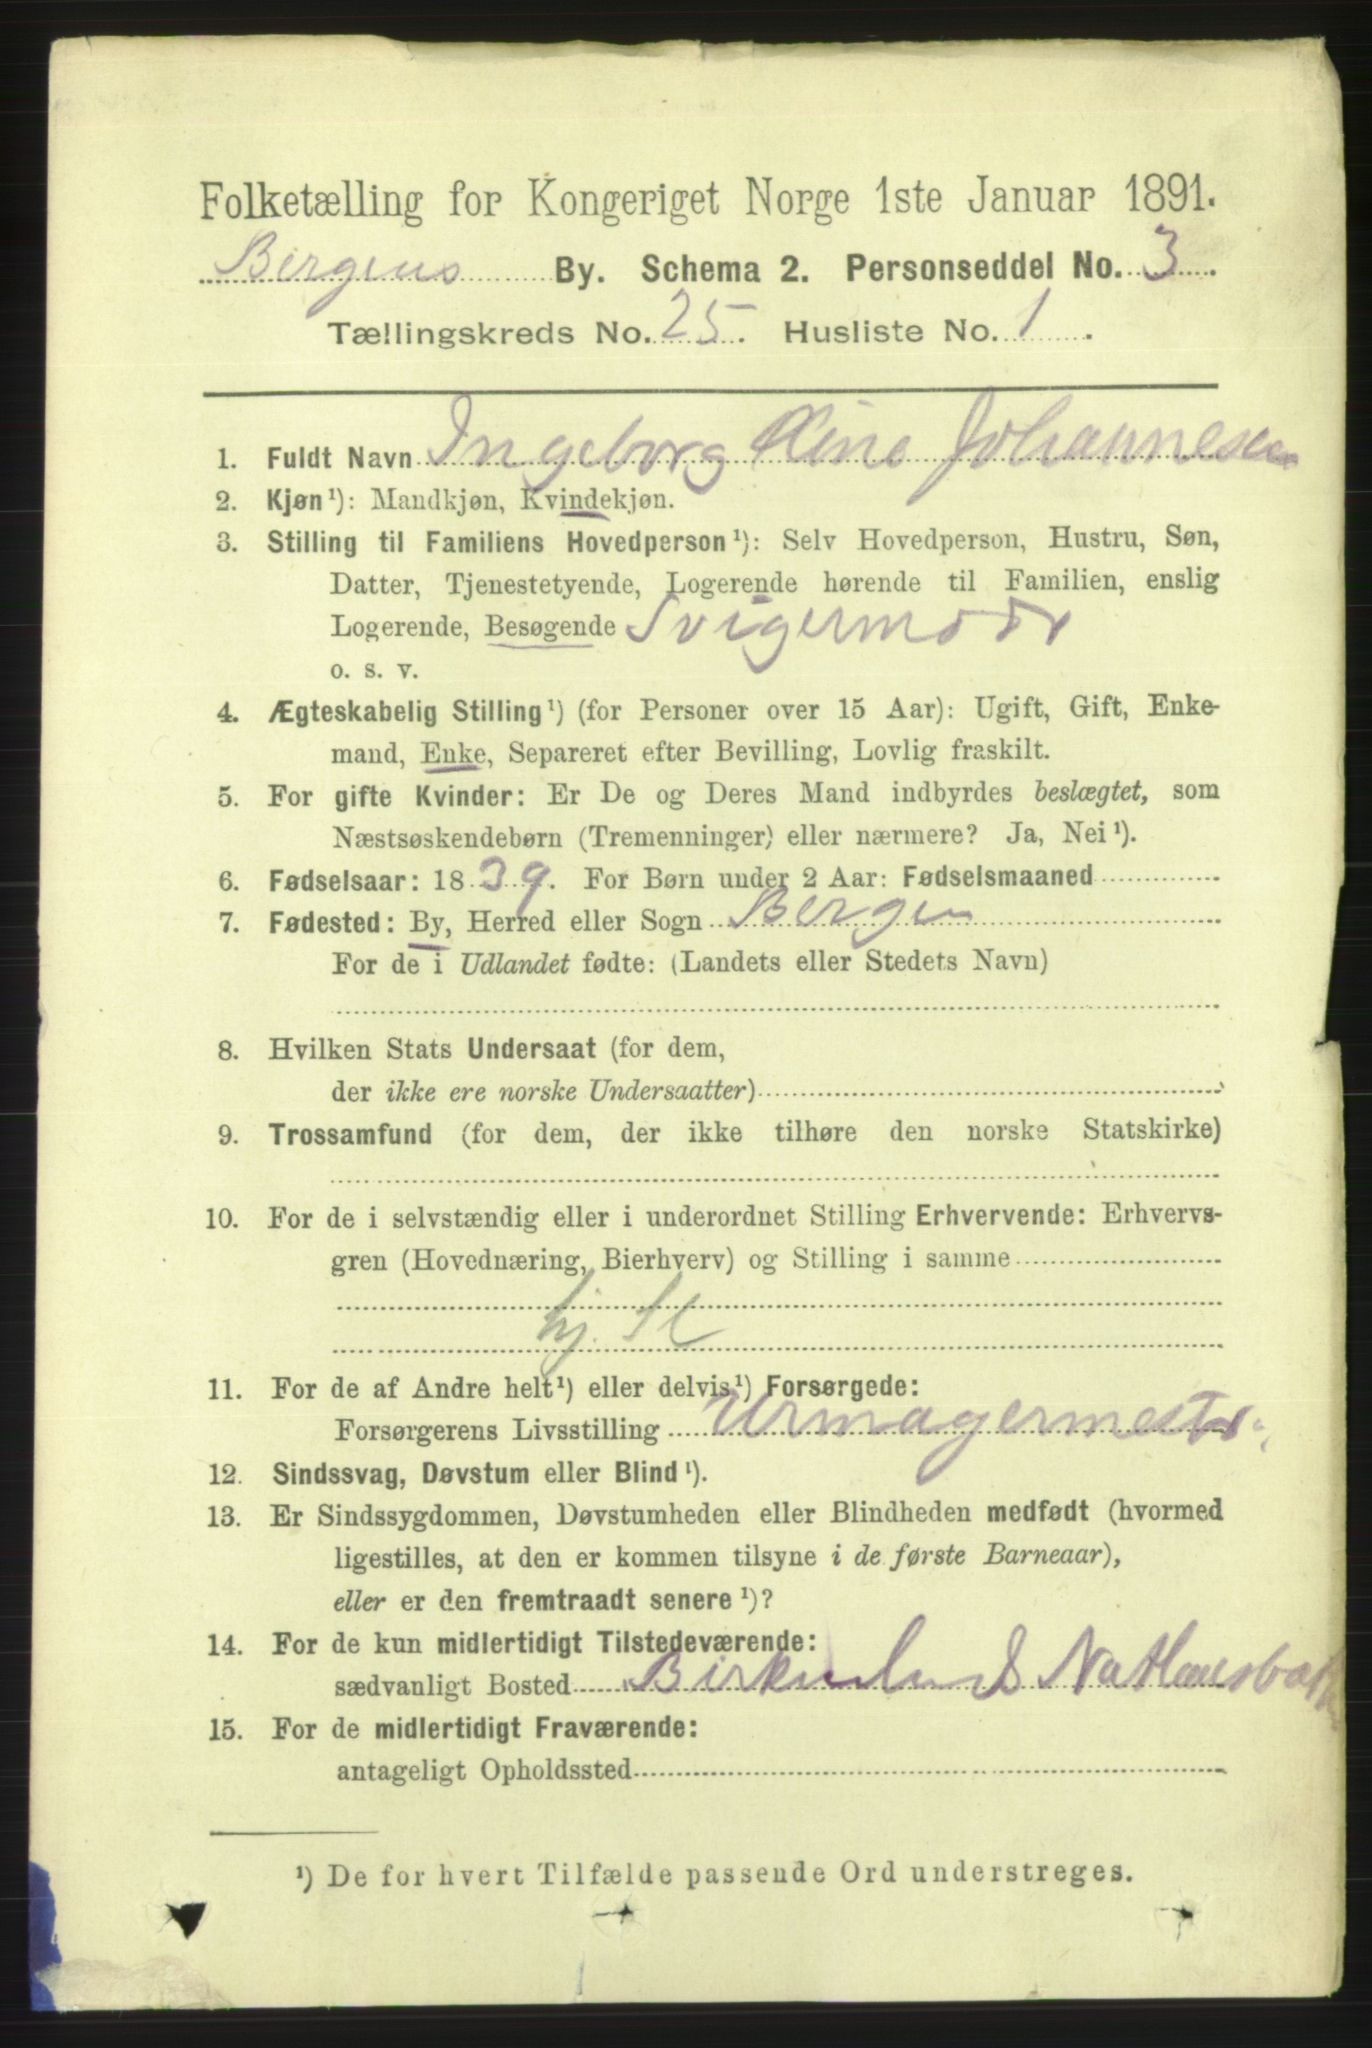 Folketælling for Kongeriget Norge 1ste Januar 1891.
Bergens By. Schema 2. Personseddel No. 3.
Tællingskreds No. 25. Husliste No. 1.
1. Fuldt Navn Ingeborg Oline Johannesen
2. Kjøn ¹): Mandkjøn, Kvindekjøn.
3. Stilling til Familiens Hovedperson ¹): Selv Hovedperson, Hustru, Søn,
Datter, Tjenestetyende, Logerende hørende til Familien, enslig
Logerende, Besøgende Svigermoder
o. s. v.
4. Ægteskabelig Stilling ¹) (for Personer over 15 Aar): Ugift, Gift, Enke-
mand, Enke, Separeret efter Bevilling, Lovlig fraskilt.
5. For gifte Kvinder: Er De og Deres Mand indbyrdes beslægtet, som
Næstsøskendebørn (Tremenninger) eller nærmere? Ja, Nei ¹).
6. Fødselsaar: 1839. For Børn under 2 Aar: Fødselsmaaned
7. Fødested: By, Herred eller Sogn Bergen
For de i Udlandet fødte: (Landets eller Stedets Navn)
8. Hvilken Stats Undersaat (for dem,
der ikke ere norske Undersaatter)
9. Trossamfund (for dem, der ikke tilhøre den norske Statskirke)
10. For de i selvstændig eller i underordnet Stilling Erhvervende: Erhvervs-
gren (Hovednæring, Bierhverv) og Stilling i samme
hj.
11. For de af Andre helt ¹) eller delvis ¹) Forsørgede:
Forsørgerens Livsstilling Urmagermester
12. Sindssvag, Døvstum eller Blind ¹).
13. Er Sindssygdommen, Døvstumheden eller Blindheden medfødt (hvormed
ligestilles, at den er kommen tilsyne i de første Barneaar),
eller er den fremtraadt senere ¹)?
14. For de kun midlertidigt Tilstedeværende:
sædvanligt Bosted Birkelund
15. For de midlertidigt Fraværende:
antageligt Opholdssted
¹) De for hvert Tilfælde passende Ord understreges.